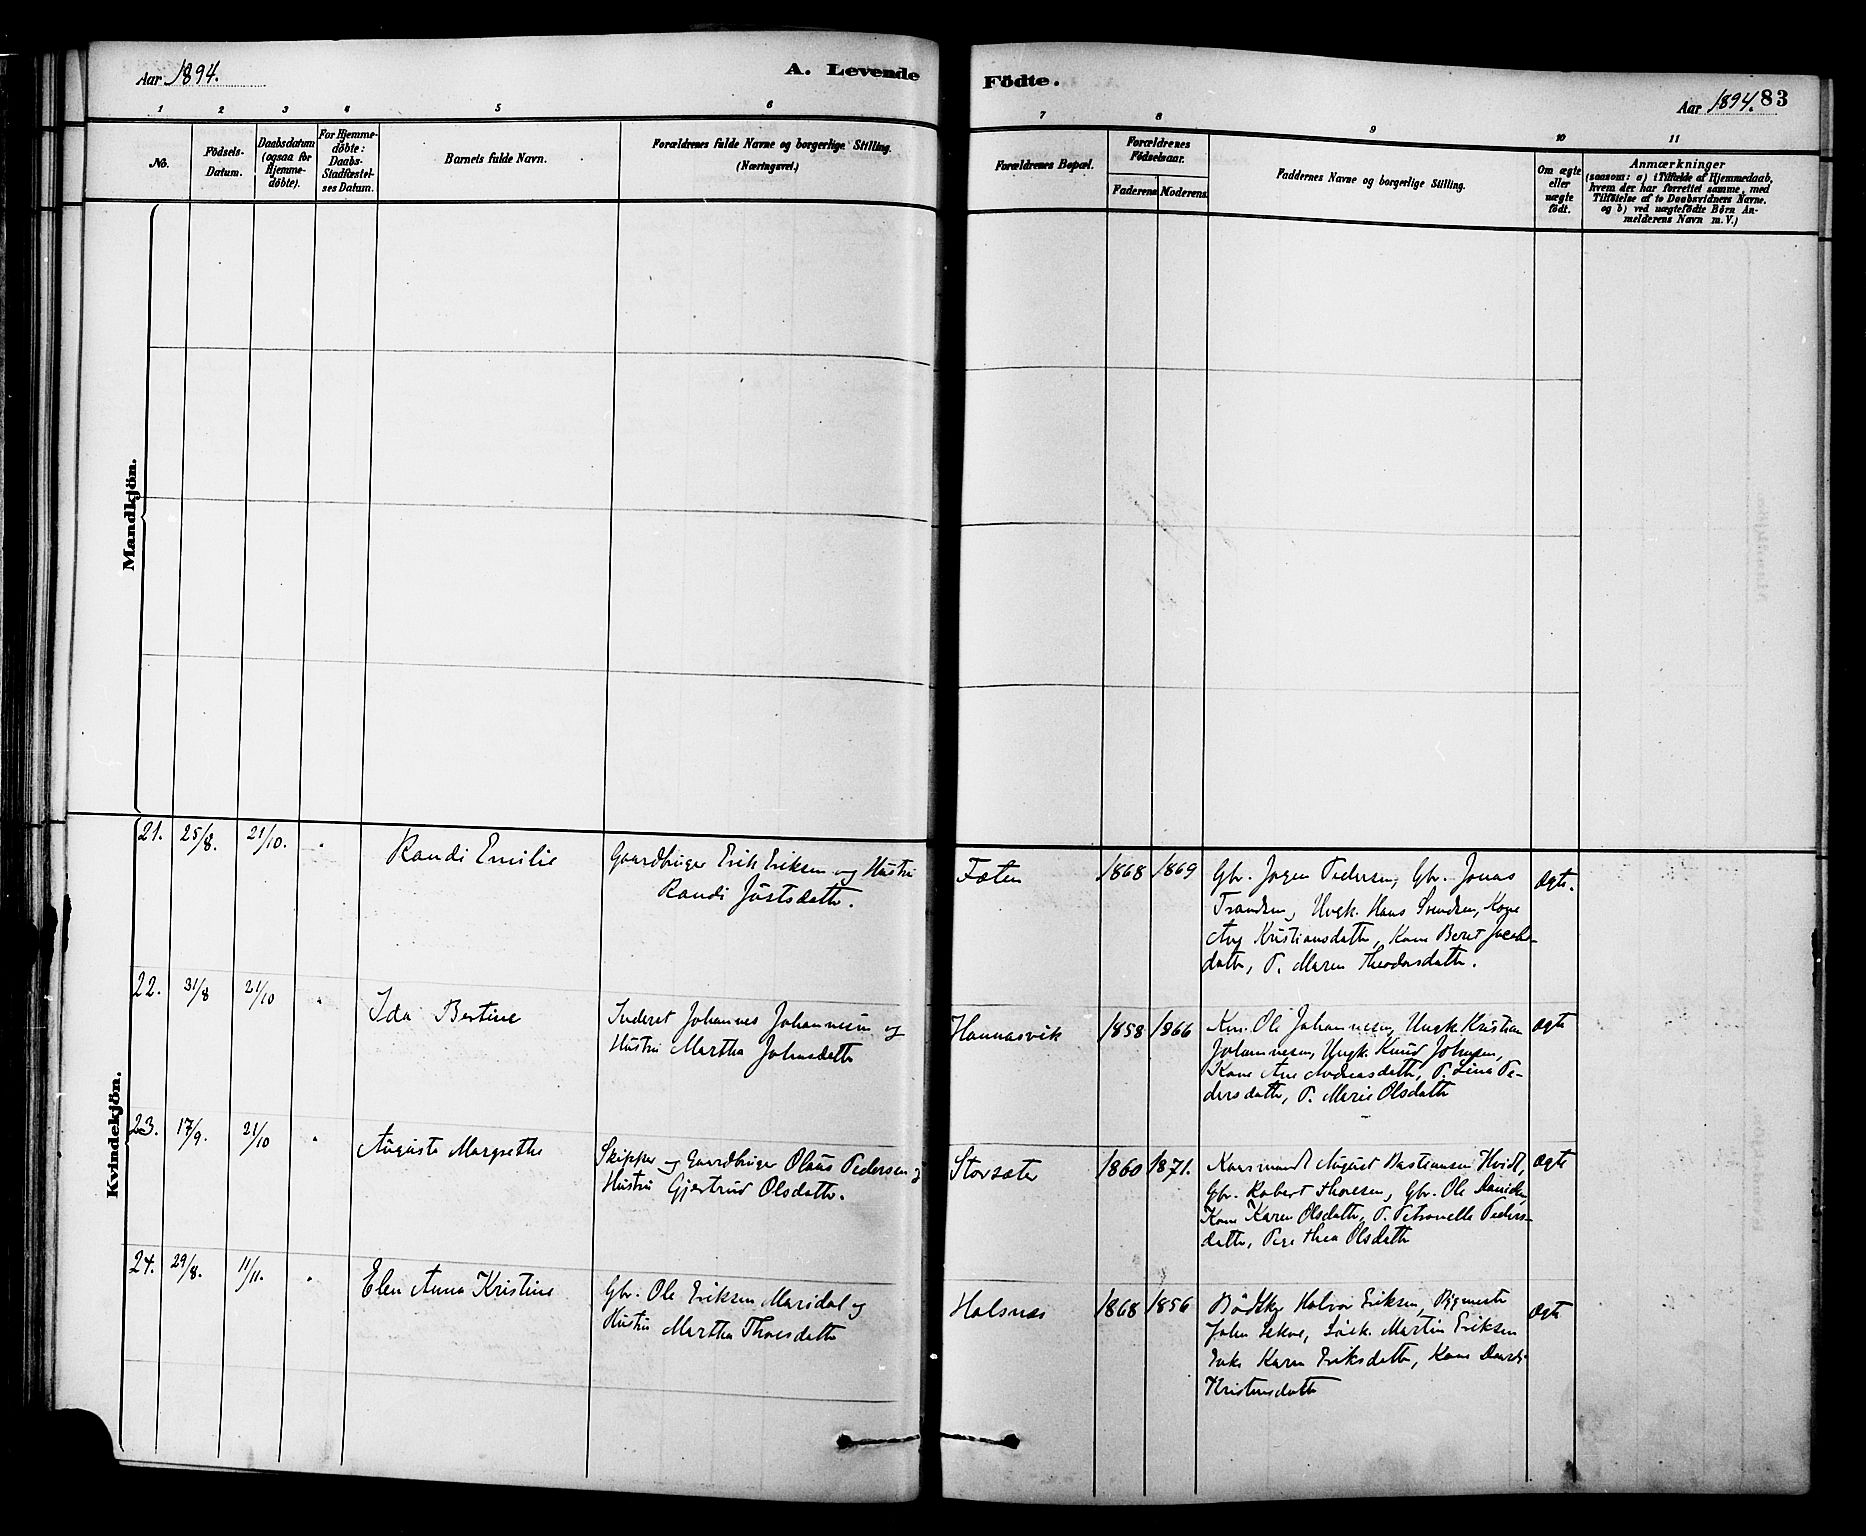 Aar 1894.
A. Levende
Födte.
Aar 1894.
83
1 2 3 4 5 6
7 8 9 10 11
No.
Födsels-
Datum.
Daabsdatum
(ogsaa for
Hjemme-
döbte).
For Hjemme-
döbte:
Daabs-
Stadfæstel-
ses Datum.
Barnets fulde Navn.
Forældrenes fulde Navne og borgerlige Stilling.
(Næringsvei.)
Forældrenes Bopæl.
Forældrenes
Födselsaar.
Faderens Moderens
Faddernes Navne og borgerlige Stilling.
Om ægte
eller
uægte
födt.
Anmærkninger
(saasom: a) i Tilfælde af Hjemmedaab,
hvem der har forrettet samme, med
Tilföielse af to Daabsvidners Navne.
og b) ved uægtefödte Börn An-
melderens Navn m. V.)
Mandkjön.
Kvindekjön.
21. 25/8. 21/10. Randi Emilie
Gaardbruger Erik Eriksen og Hustru
Randi Justsdattr.
1868 1869
Gbr. Jørgen Pedersen, Gbr. Jonas
Trondsen, Ungk. Hans Svendsen, Kone
Kristiansdattr, Kone Beret Jacobs-
dattr, P. Maren Theodorsdattr.
Ægte.
22. 31/8 21/10 Ida Bertine
Inderst Johannes Johannesen og
Hustru Martha Johnsdattr
Hannasvik 1858 1866
Ole Johannesen, Ungk. Kristian
Johannesen, Ungk. Knud Johnsen,
Kone Ane Andreasdattr, P. Lina Pe-
dersdattr, P. Marie Olsdattr
Ægte
23. 17/9. 21/10 Auguste Margrethe
Skipper og Gaardbruger Olaus Pedersen og
Hustru Gjertrud Olsdattr.
Storsæter 1860 1871.
August Bastiansen Hvidt,
Gbr. Robert Thoresen, Gbr. Ole
Kone Karen Olsdattr, P. Petronelle Peders-
dattr, Pige Thea Olsdattr
Ægte
24. 29/8. 11/11. Elen Anna Kristine
Gbr. Ole Eriksen Maridal og
Hustru Martha Thoresdattr
Halsnes 1868 1856
Halvor Eriksen,
John Martin Eriksen
Enke Karen Eriksdattr, Kone
Kristensdattr
Ægte